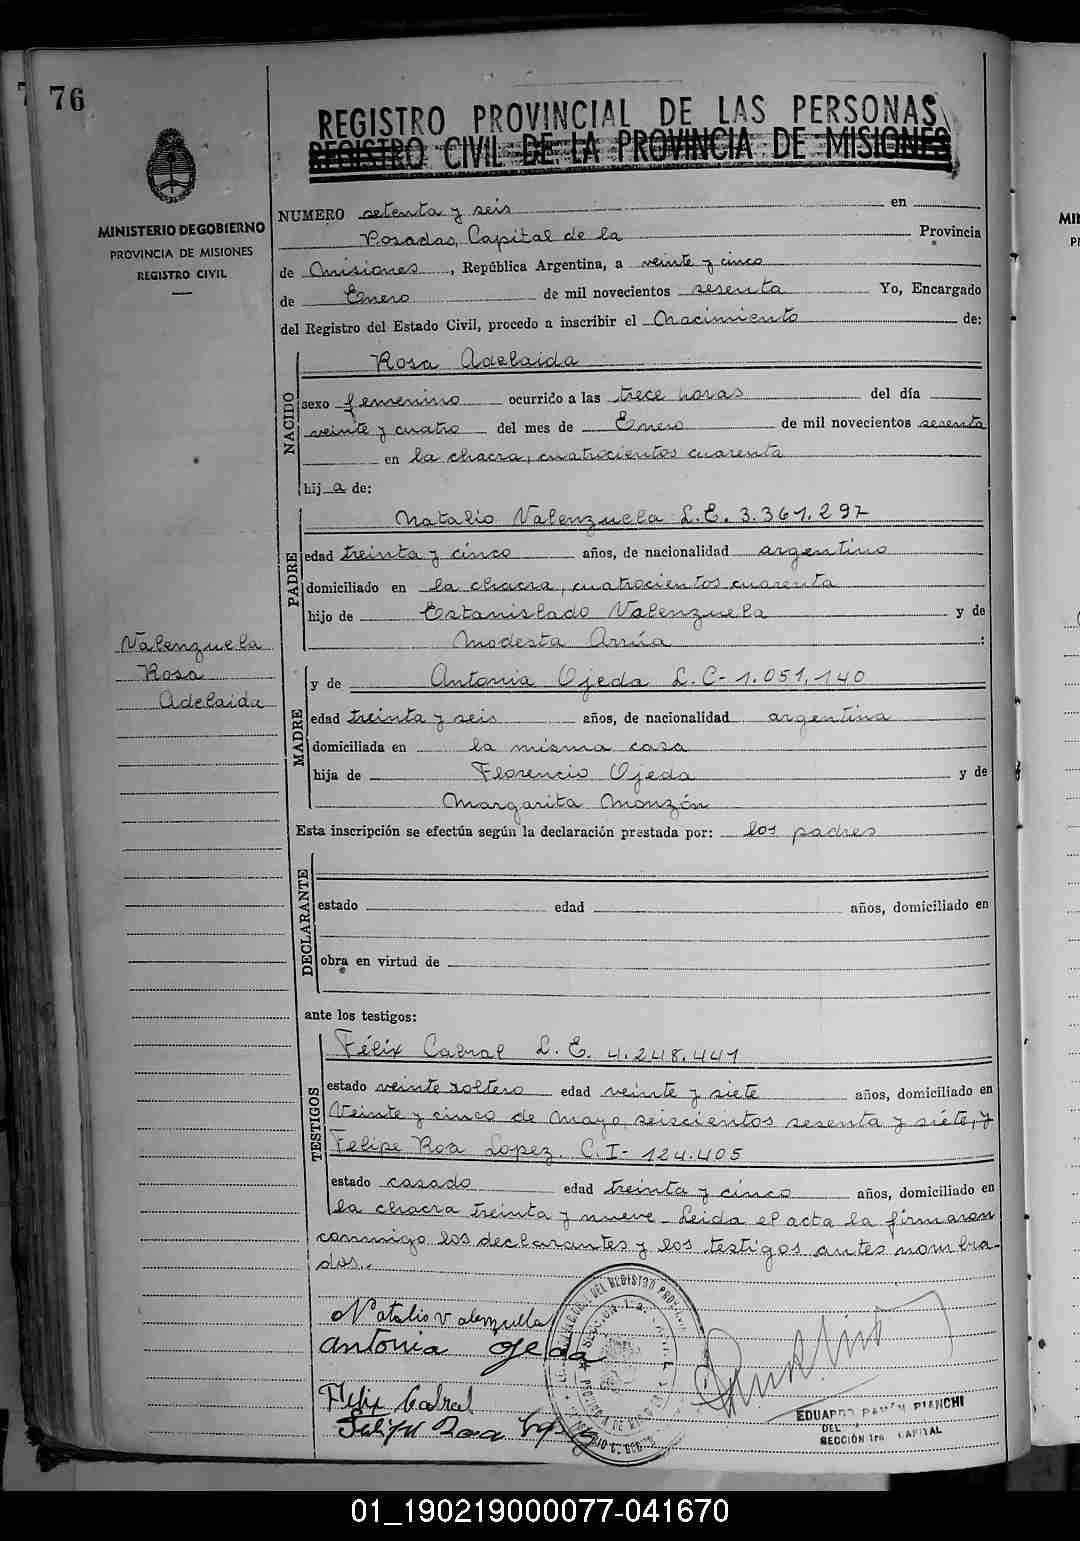 76
REGISTRO PROVINCIAL DE LAS PERSONAS
REGISTRO CIVIL DE LA PROVINCIA DE MISIONES
MINISTERIO DE GOBIERNO
PROVINCIA DE MISIONES
REGISTRO CIVIL
NUMERO setenta y seis en
Posadas, Capital de la Provincia
de Misiones, República Argentina, a veinte y cinco
de Enero de mil novecientos sesenta Yo, Encargado
del Registro del Estado Civil, procedo a inscribir el Nacimiento de:
NACIDO
Rosa Adelaida
sexo femenino ocurrido a las trece horas del día
veinte y cuatro del mes de Enero de mil novecientos sesenta
en la chacra, cuatrocientos cuarenta
hija de:
PADRE
Natalio Valenzuela L.E. 3.361.297
edad treinta y cinco años, de nacionalidad argentino
domiciliado en la chacra, cuatrocientos cuarenta
hijo de Estanislado Valenzuela y de
Modesta Arrúa :
Valenzuela
Rosa
Adelaida
MADRE
y de Antonia Ojeda L.C-1.051.140
edad treinta y seis años, de nacionalidad argentina
domiciliada en la misma casa
hija de Florencio Ojeda y de
Margarita Monzón
Esta inscripción se efectúa según la declaración prestada por: los padres
DECLARANTE
estado edad años, domiciliado en
obra en virtud de
ante los testigos:
TESTIGOS
Félix Cabral L.E. 4.248.441
estado veinte soltero edad veinte y siete años, domiciliado en
Veinte y cinco de mayo, seiscientos sesenta y siete, y
Felipe Roa Lopez. C.I-124.405
estado casado edad treinta y cinco años, domiciliado en
la chacra treinta y nueve. Leida el acta la firmaron
conmigo los declarantes y los testigos antes nombra-
dos..
Natalio Valenzuela
antonia ojeda
Felix Cabral
Felipe Roa
EDUARDO RAMÓN PIANCHI
DEL
SECCIÓN 1ra. CAPITAL
01_190219000077-041670